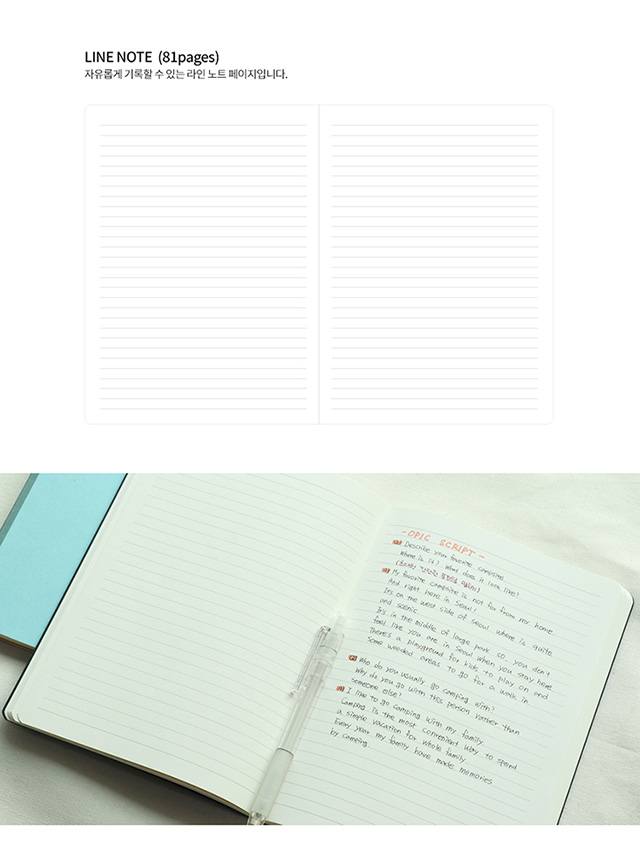 LINE NOTE (81pages)
자유롭게 기록할 수 있는 라인 노트 페이지입니다.
-OPIC SCRIPT-
Describe your favorite campsite.
Where is it? What does it look like?
My favorite campsite is not far from my home
And right here in Seoul!
It's on the west side of Seoul where is quite
and scenic
It's in the middle of large park so you don't
feel like you are in Seoul when you stay here.
There's a playground for kids to play on and
some wooded areas to go for a walk in
Who do you usually go camping with?
Why do you go with this person rather than
someone else?
I like to go camping with my family
Camping is the most convenient way to spend
a simple vacation for whole family
Every year my family have made memories
by camping.